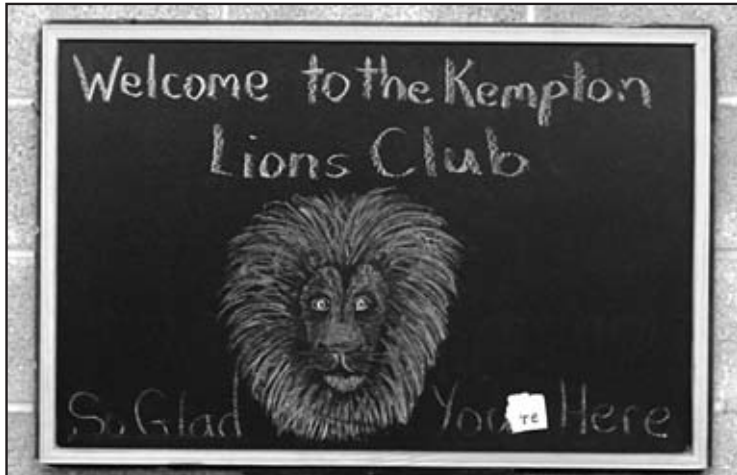 Welcome to the Kempton
Lions Club
So Glad You're Here